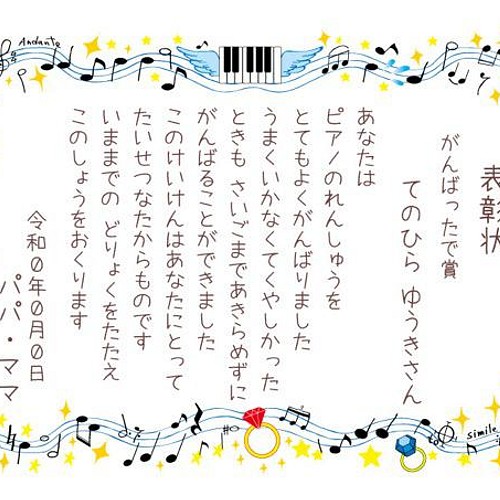 Andante
表彰状
がんばったで賞
てのひら ゆうきさん
あなたは
ピアノのれんしゅうを
とてもよくがんばりました
うまくいかなくてくやしかった
ときも さいごまであきらめずに
がんばることができました
このけいけんはあなたにとって
たいせつなたからものです
いままでの どりょくをたたえ
このしょうをおくります
令和0年0月0日
パパ・ママ
simile